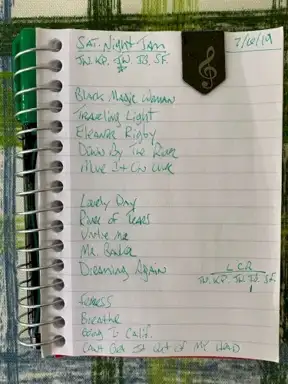 SAT. Night Jam 7/6/19
JW. KP. JW. JB. SF.
Black Magic Woman
Traveling Light
Eleanor Rigby
Down By The River
Move It On Over
Lovely Day
River of Tears
Untie Me
Mr. Banker
Dreaming Again
LCR
JW. KP. JW JB. SF.
1
Breathe
Going To Calif.
Can't Get It Out Of My Head